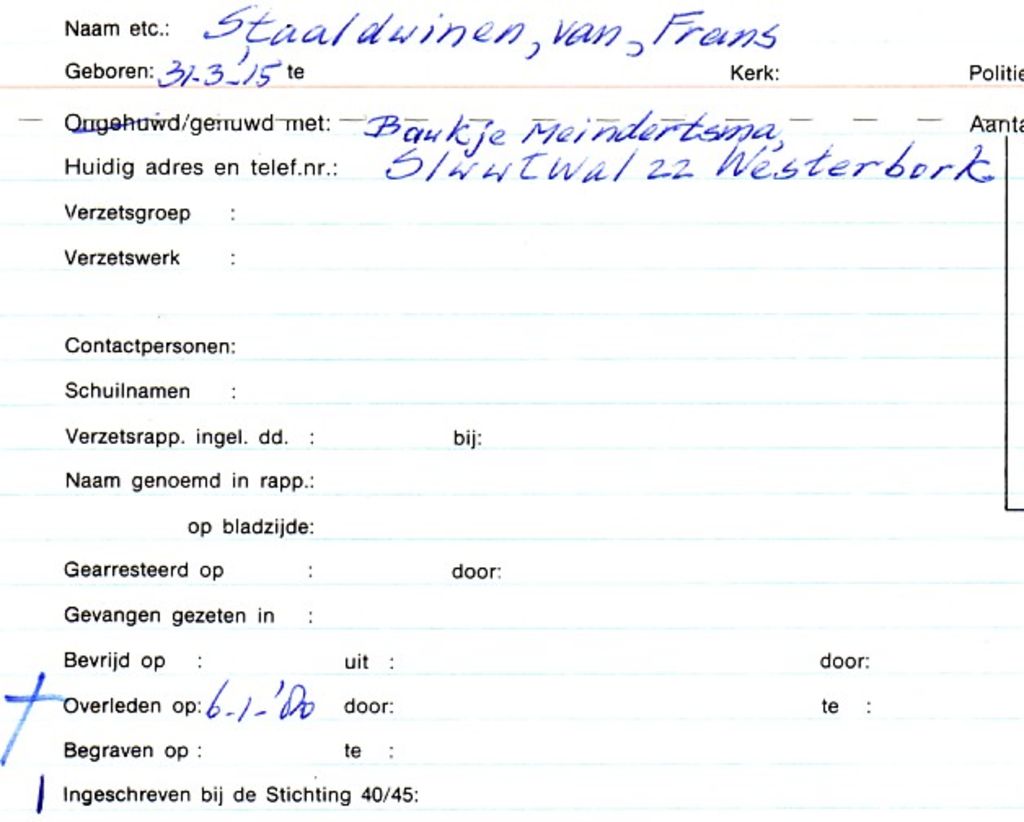 Naam etc.: Staalduinen, van, Frans
Geboren: 31-3-'15 te Kerk: Politie
Ongehuwd/gehuwd met: Baukje Meindertsma,
Huidig adres en telef.nr.: 22 Westerbork.
Aanta
Verzetsgroep :
Verzetswerk :
Contactpersonen:
Schuilnamen :
Verzetsrapp. ingel. dd. : bij:
Naam genoemd in rapp.:
op bladzijde:
Gearresteerd op : door:
Gevangen gezeten in :
Bevrijd op : uit : door:
Overleden op: 6-1-'80 door: te :
Begraven op : te :
Ingeschreven bij de Stichting 40/45: